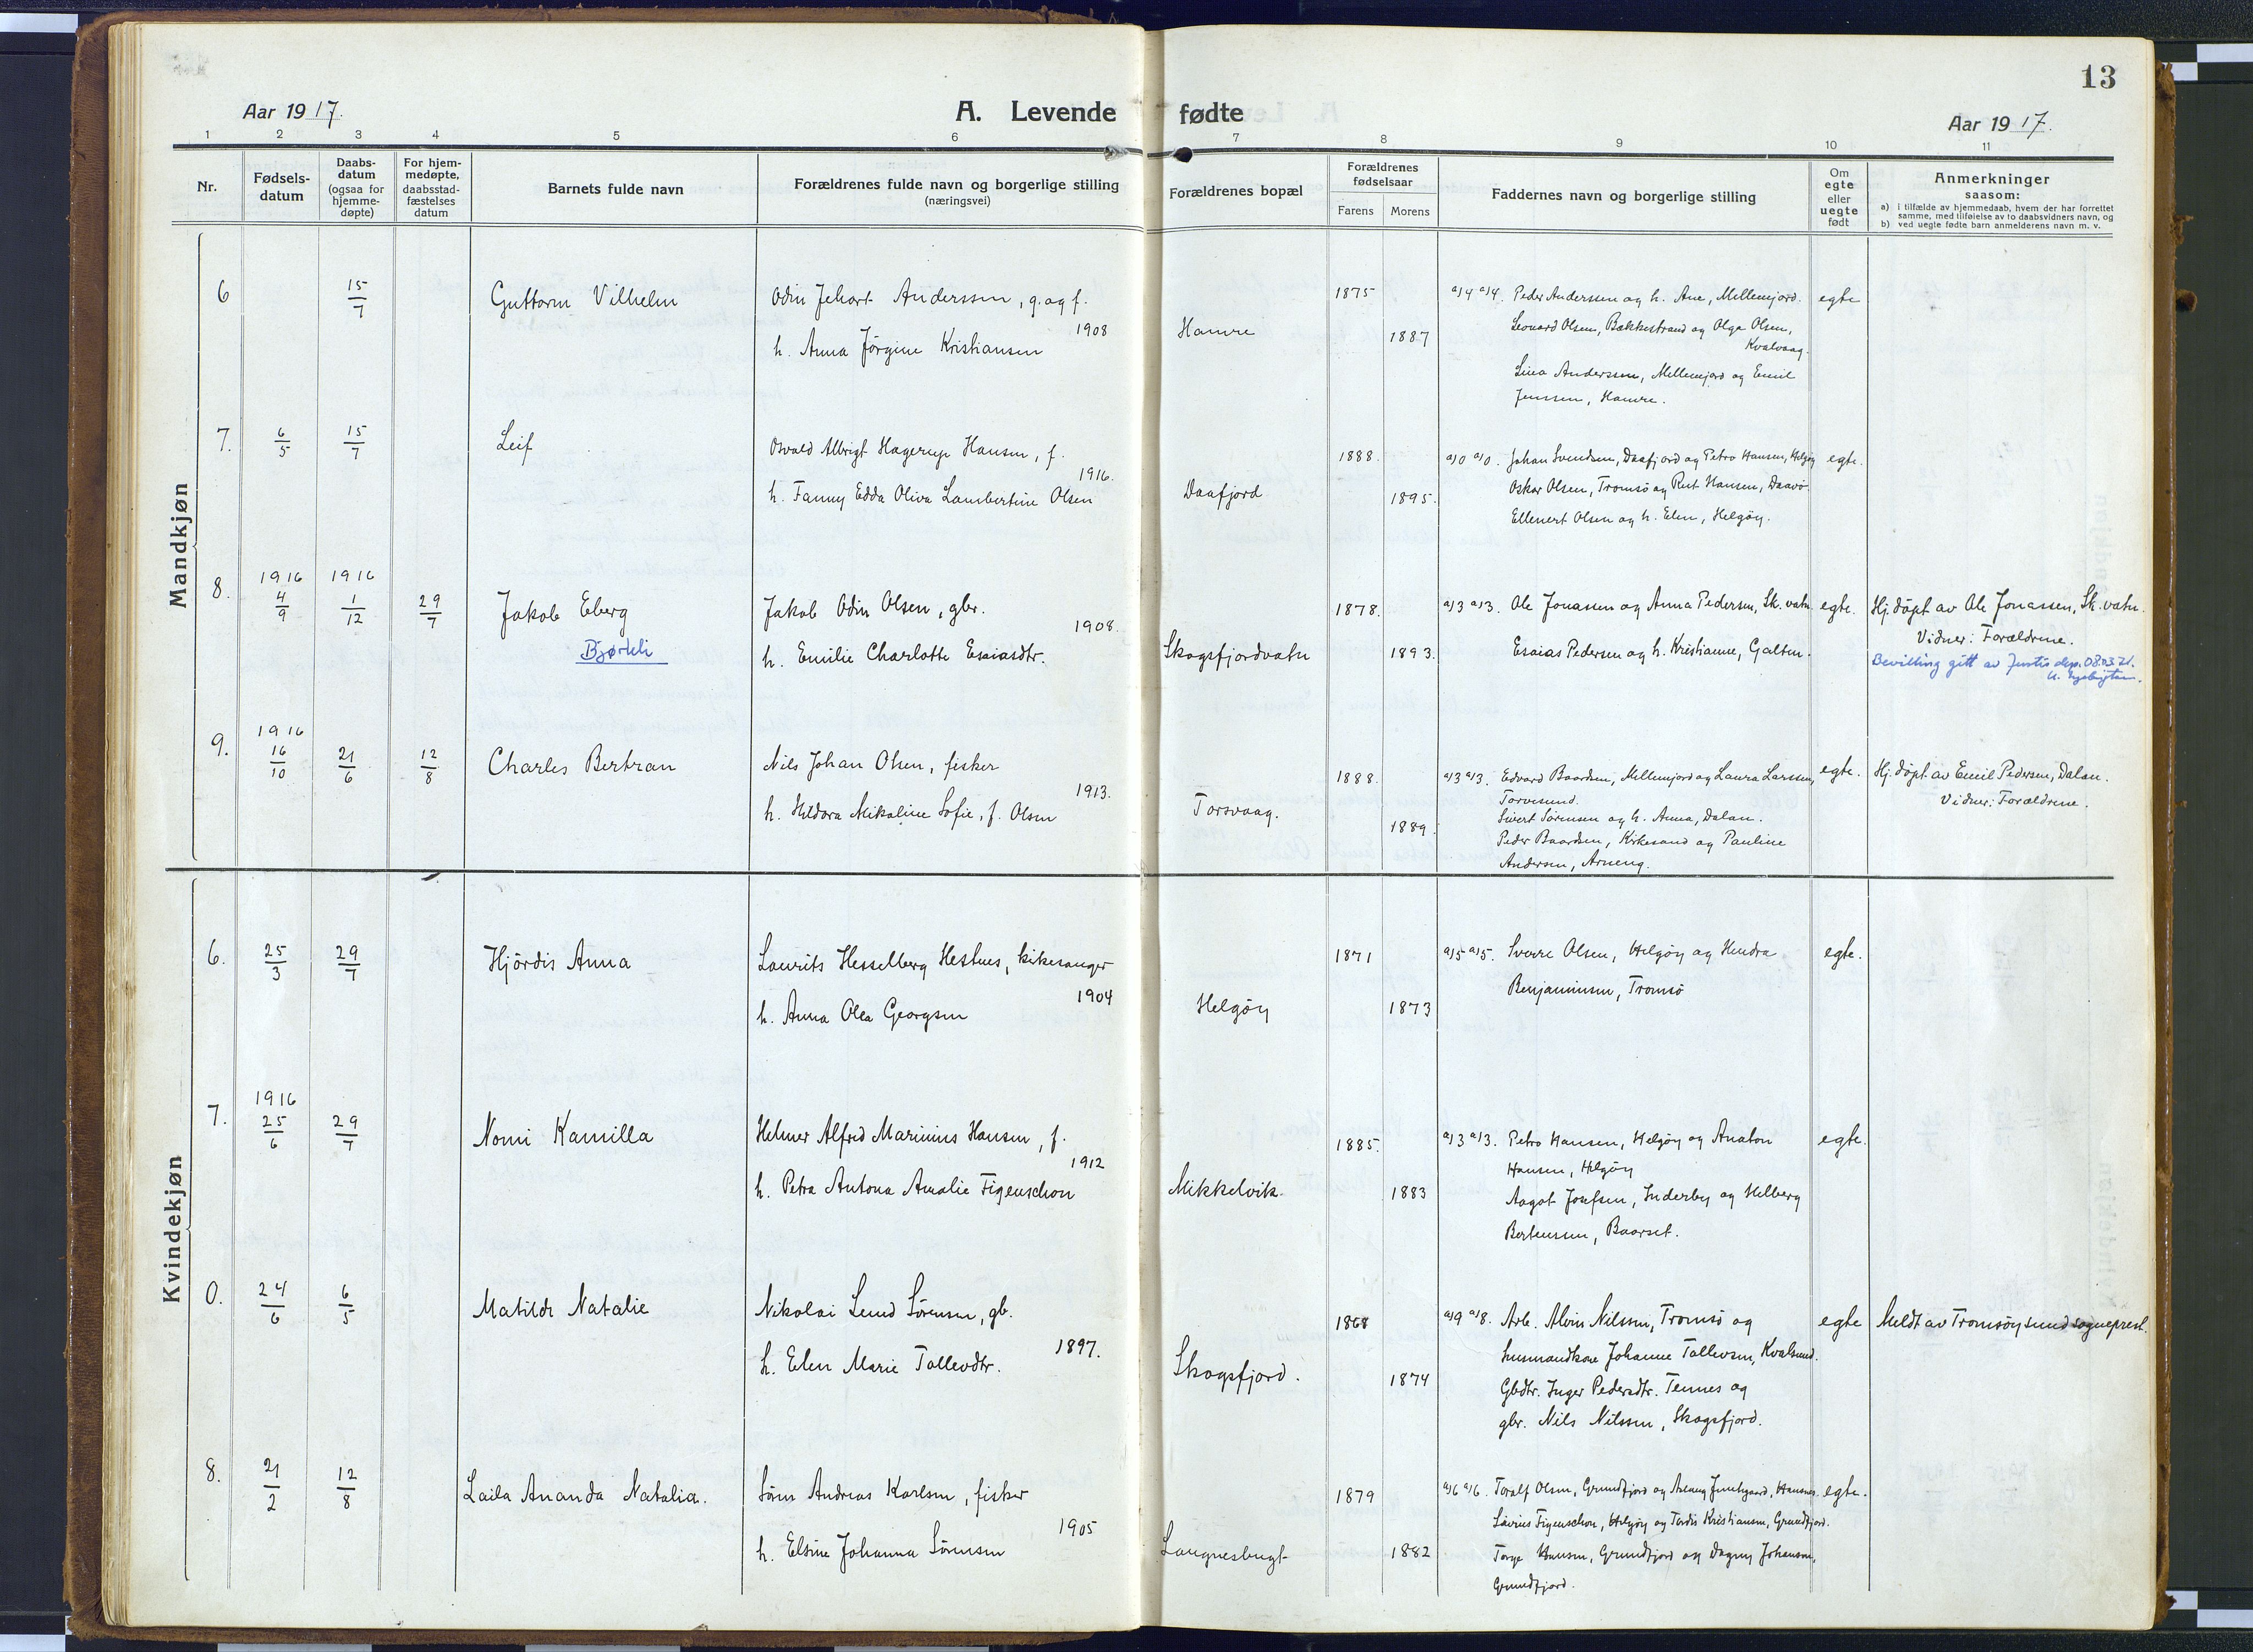 13
Aar 1917.
A. Levende fødte
Aar 1917.
1 2 3 4 5 6 7 8 9 10 11
Nr.
Fødsels-
datum
Daabs-
datum
(ogsaa for
hjemme-
døpte)
For hjem-
medøpte,
daabsstad-
fæstelses
datum
Barnets fulde navn
Forældrenes fulde navn og borgerlige stilling
(næringsvei)
Forældrenes bopæl
Forældrenes
fødselsaar
Farens Morens
Faddernes navn og borgerlige stilling
Om
egte
eller
uegte
født
Anmerkninger
saasom:
a) i tilfælde av hjemmedaab, hvem der har forrettet
samme, med tilføielse av to daabsvidners navn, og
b) ved uegte fødte barn anmelderens navn m. v.
Mandkjøn
6 15/7 Guttorm Vilhelm
Odin Jehart Anderssen, g. og f.
1908
h. Anna Jörgine Kristiansen
Hamre
1875
1887
a/4 a/4. Peder Anderssen og h. Ane, Mellemjord.
Leonard Olsen, Bakkestrand og Olga Olsen,
Kvalvaag.
Lina Anderssen, Mellemjord og Emil
Jenssen, Hamre.
egte
7. 6/5 15/7 Leif
Osvald Albrigt Hagerup Hansen, f.
1916.
h. Fanny Edda Oliva Lambertine Olsen
Daafjord
1888.
1895.
a/0 a/0. Johan Svendsen, Daafjord og Petra Hansen, Helgöy
Oskar Olsen, Tromsö og Rut Hansen, Daavö.
Ellenert Olsen og h. Elen, Helgöy.
egte.
8. 1916 4/9 1916 1/12 29/7 Jakob Eberg
Bjørkli
Jakob Odin Olsen, gbr.
1908.
h. Emilie Charlotte Esaiasdtr.
Skogsfjordvatn
1878.
1893.
a/3 a/3. Ole Jonassen og Anna Pedersen, Sk.vatn.
Esaias Pedersen og h. Kristianne, Galten.
egte.
Hj. döpt av Ole Jonassen, Sk.vatn.
Vidner: Forældrene.
Bevilling gitt av Justis dep. 08.03 21.
9. 1916 16/10 21/6 12/8 Charles Bertran
Nils Johan Olsen, fisker
1913.
h. Hildora Mikaline Sofie, f. Olsen
Torsvaag.
1888.
1889.
a/3 a/3. Edvard Baardsen, Mellemjord og Laura Larssen,
Torvesund.
Sivert Sörensen og h. Anna, Dalan.
Peder Baardsen, Kirkesand og Pauline
Andersen, Arneng.
egte.
Hj. döpt av Emil Pedersen, Dalan.
Vidner: Forældrene.
Kvindekjøn
6. 25/3 29/7 Hjördis Anna
Laurits Hesselberg Hestnes, kirkesanger
1904
h. Anna Olea Georgsen
Helgöy
1871
1873
a/5 a/5. Sverre Olsen, Helgöy og Hendra
Benjaminsen, Tromsö
egte.
7. 1916 25/6 29/7 Nomi Kamilla
Helmer Alfred Marinius Hansen, f.
1912
h. Petra Antona Amalie Figenschou
Mikkelvik.
1885.
1883
a/3 a/3. Petra Hansen, Helgöy og Anaton
Hansen, Helgöy
Aagot Josefsen, Inderby og Helberg
Bertensen, Baarset.
egte.
0. 24/6 6/5 Matilde Natalie
Nikolai Lund Sörensen, gb.
1897.
h. Elen Marie Tollevdtr.
Skogsfjord.
1868
1874
a/9 a/8. Arb. Alvin Nilssen, Tromsö og
husmandkone Johanne Tollevsen, Kvalsund.
Gbdtr. Inger Pedersdtr. Tennes og
gbr. Nils Nilssen, Skogsfjord.
egte
Meldt av Tromsöysund sogneprest.
8. 21/2 12/8 Laila Ananda Natalia.
Sören Andreas Karlsen, fisker
1905
h. Elsine Johanna Sörensen
Langnesbugt
1879
1882
a/6 a/6. Toralf Olsen, Grundfjord og Aslaug Junhgaard, Hansnes.
Lavius Figenschou, Helgöy og Tordis Kristiansen, Grundfjord.
Torge Hansen, Grundfjord og Dagny Johansen,
Grundfjord.
egte.